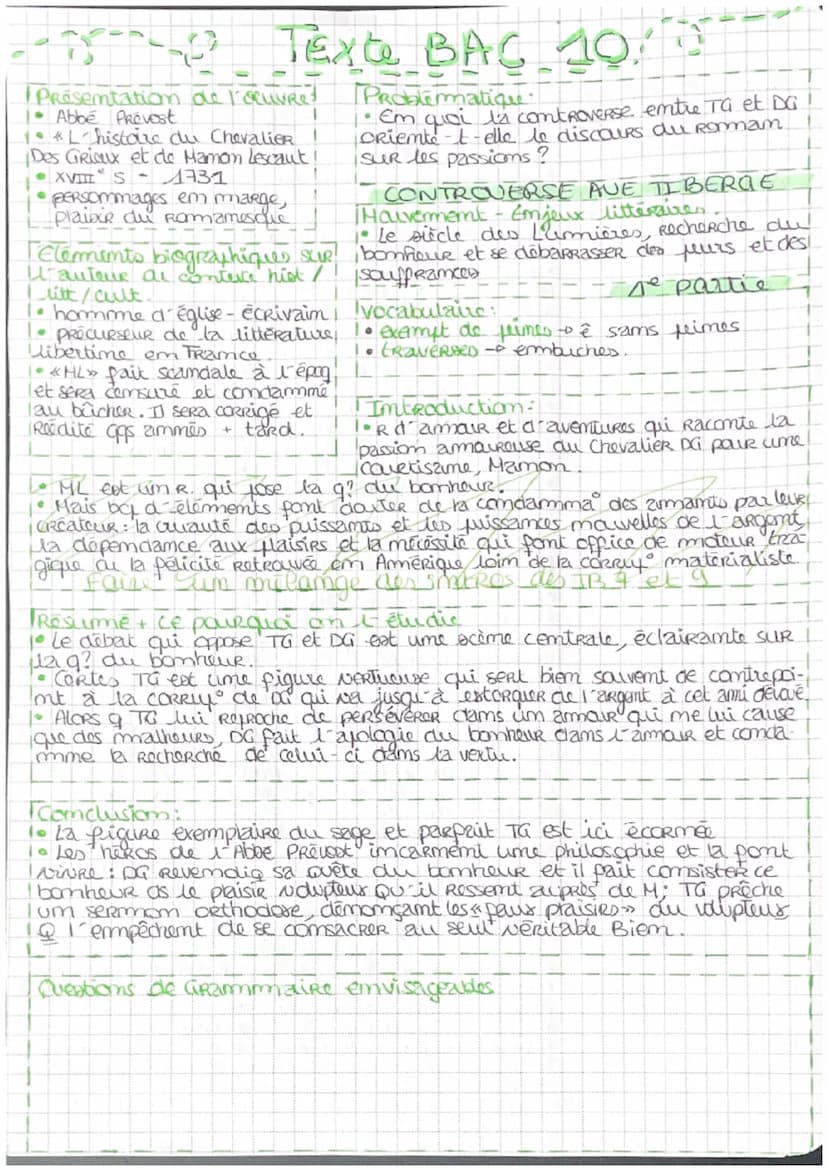 Texte BAC 10
Présentation de l'œuvre:
• Abbé Prévost
• « L'histoire du Chevalier
Des Grieux et de Manon Lescaut
• XVIIIe s - 1731
• personnages en marge,
plaisir du Romanesque
Eléments biographiques sur
l'auteur ou contexte hist /
litt / cult.
• homme d'église - écrivain
• précurseur de la littérature
libertine en France.
• « ML » fait scandale à l'époq
et sera censuré et condamné
au bûcher. Il sera corrigé et
Réédité qqs années + tard.
Problématique:
• En quoi la controverse entre TG et DG
oriente-t-elle le discours du Roman
sur les passions ?
CONTROVERSE AVE TIBERGE
Mouvement - Enjeux littéraires.
• Le siècle des Lumières, recherche du
bonheur et se débarrasser des peurs et des
souffrances
1e partie
Vocabulaire:
• exempt de peines → ê sans peines
• traverses → embuches.
Introduction:
• R d'amour et d'aventures qui raconte la
passion amoureuse du Chevalier DG pour une
courtisane, Manon.
• ML est un R. qui pose la q? du bonheur.
• Mais bcp d'éléments font douter de la condamna° des amants par leur
créateur : la cruauté des puissants et les puissances mauvelles de l'argent,
la dépendance aux plaisirs et la nécessité qui font office de moteur tra-
gique ou la félicité retrouvée en Amérique loin de la corrup° matérialiste
Faire un mélange des intros des TB 7 et 9
Résumé + ce pourquoi on l'étudie
• Le débat qui oppose TG et DG est une scène centrale, éclairante sur
la q? du bonheur.
• Certes TG est une figure vertueuse qui sert bien souvent de contrepoi-
nt à la corrup° de DG qui va jusqu'à extorquer de l'argent à cet ami dévoué
• Alors q TG lui reproche de persévérer dans un amour qui ne lui cause
que des malheurs, DG fait l'apologie du bonheur dans l'amour et conda-
mne la recherche de celui-ci dans la vertu.
Conclusion:
• La figure exemplaire du sage et parfait TG est ici écornée
• Les héros de l'Abbé Prévost incarnent une philosophie et la font
vivre : DG revendiq sa quête du bonheur et il fait consister ce
bonheur ds le plaisir voluptueux qu'il ressent auprès de M; TG prêche
un sermon orthodoxe, dénonçant les « faux plaisirs » du voluptueux
Q l'empêchent de se consacrer au seul véritable Bien.
Questions de Grammaire envisageables